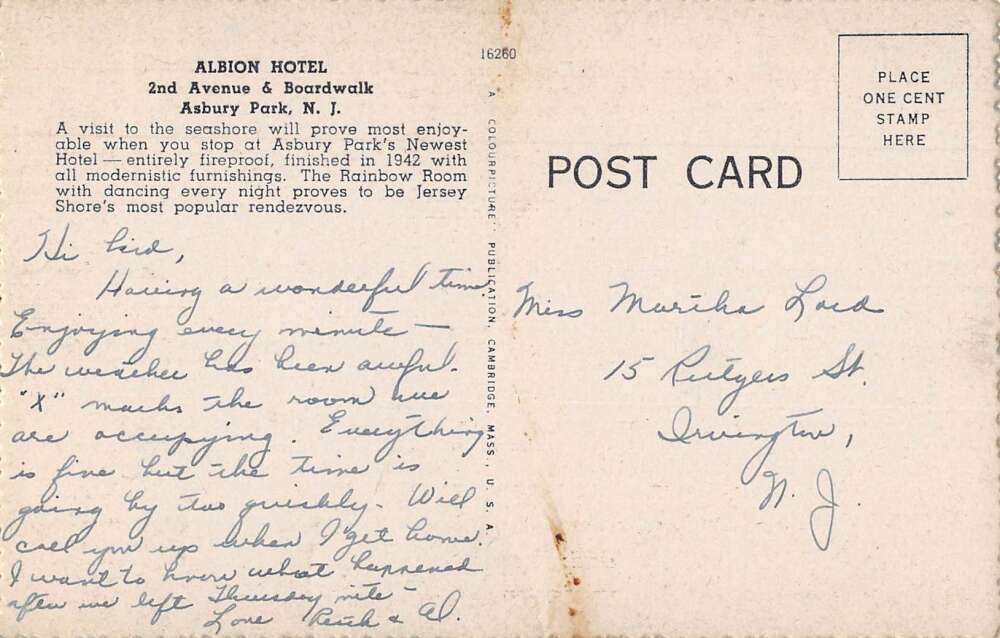 ALBION HOTEL
2nd Avenue & Boardwalk
Asbury Park, N. J.
A visit to the seashore will prove most enjoy-
able when you stop at Asbury Park's Newest
Hotel — entirely fireproof, finished in 1942 with
all modernistic furnishings. The Rainbow Room
with dancing every night proves to be Jersey
Shore's most popular rendezvous.
Hi kid,
Having a wonderful time.
Enjoying every minute —
The weather has been awful.
"X" marks the room we
are occupying. Everything
is fine but the time is
going by too quickly. Will
call you up when I get home.
I want to know what happened
after we left Thursday nite -
Love & Al.
16260
A COLOURPICTURE PUBLICATION, CAMBRIDGE, MASS., U. S. A.
POST CARD
PLACE
ONE CENT
STAMP
HERE
Miss Martha Lord
15 Rutgers St.
Irvington,
N. J.